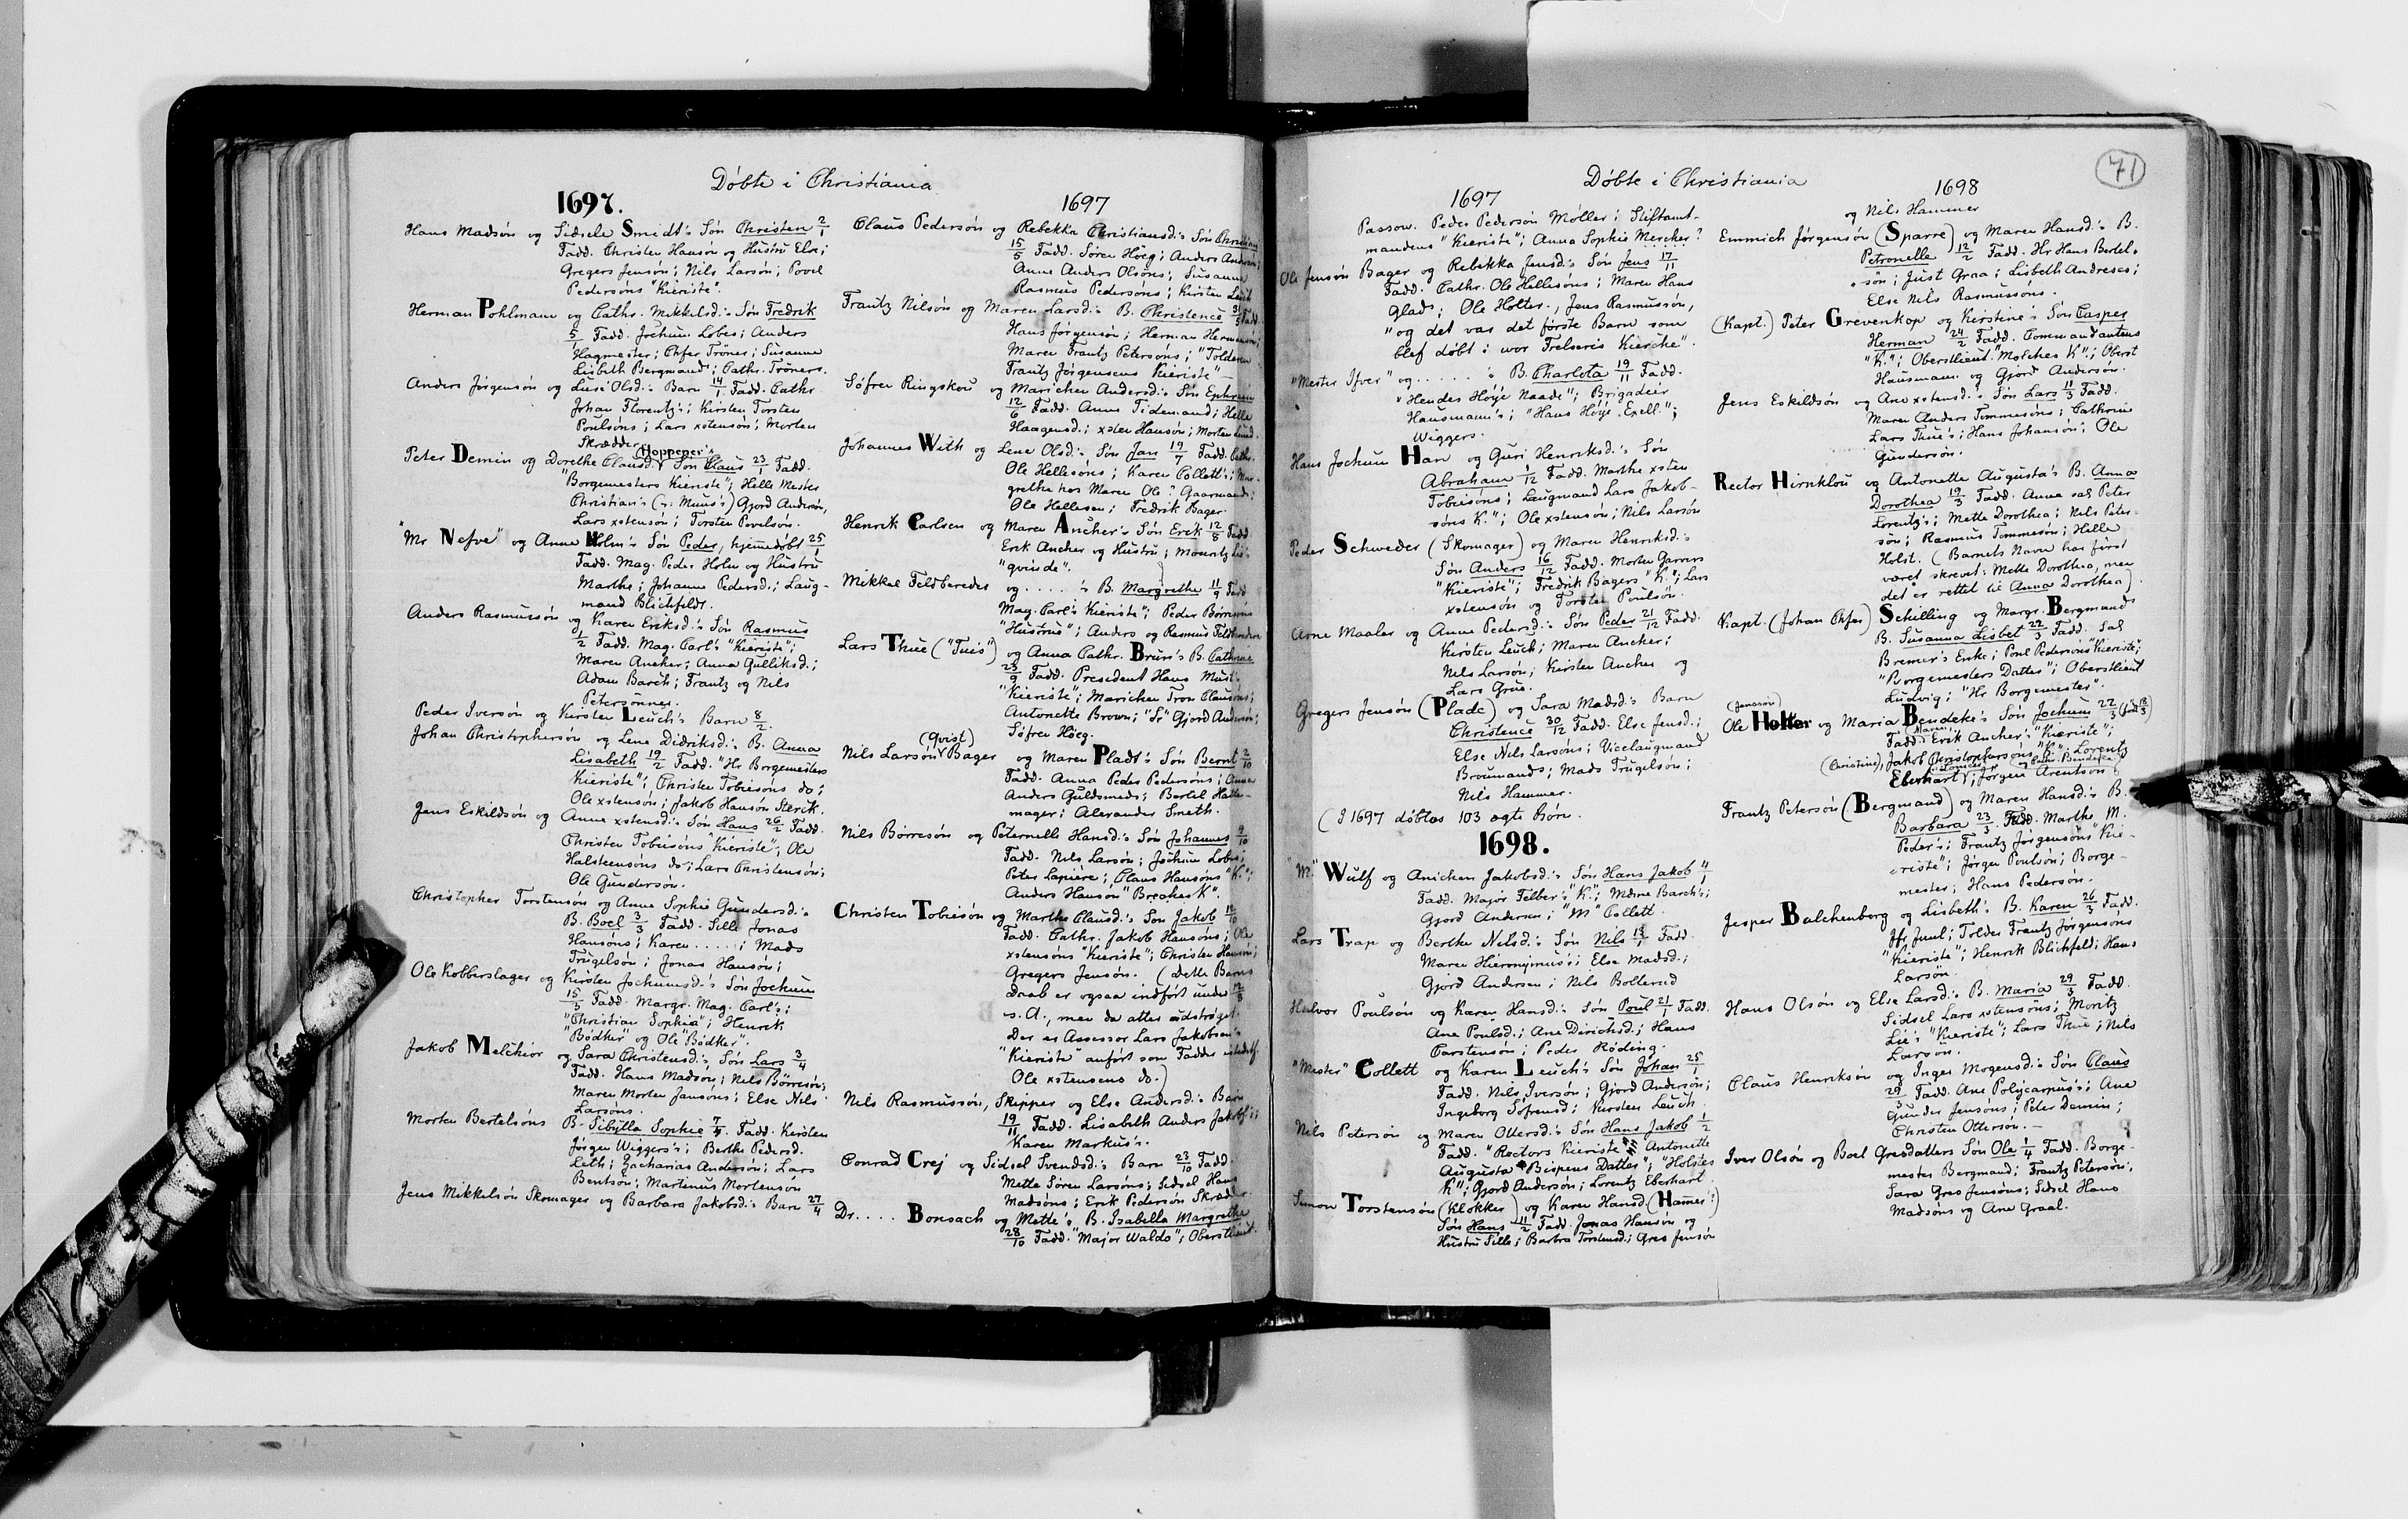 Døbte i Christiania
1697.
Hans Madsøn og Sidsele Smidt's Søn Christen 2/1
Fadd. Christen Hansøn og Hustru Else;
Gregers Jensøn; Nils Larsøn; Povel
Pedersøns "Kieriste".
Herman Pohlmann og Cathr. Mikkelsd.'s Søn Fredrik
5/1 Fadd. Jochum Lobes; Anders
Hagmester; Chfer Trøner; Susanna
Lisbeth Bergmand; Cathr. Trøners.
Anders Jørgensøn og Lusi Olsd.'s Barn 14/1. Fadd. Cathr.
Johan Florentz's; Kirsten Torsten
Poulsøns; Lars xstensøn; Morten
Skrædder.
Hoppener's
Peter Demin og Dorethe Clausd. Søn Claus 23/1 Fadd.
"Borgemesters Kieriste"; Helle Mester
Christian's (ɔ: Muus's) Gjord Andersøn,
Lars xstensøn; Torsten Povelsøn.
"Mr Nefve" og Anne Holm's Søn Peder, hjemmedøbt 25/1
Fadd. Mag. Peder Holm og Hustru
Marthe; Johanne Pedersd.; Laug-
mand Blichfeldt.
Anders Rasmusøn og Karen Eriksd.'s Søn Rasmus
1/2 Fadd. Mag. Carl's "Kieriste";
Maren Ancher; Anna Gulliksd.;
Adam Barch; Frantz og Nils
Petersønner.
Peder Iversøn og Kirsten Leuch's Barn 8/2.
Johan Christophersøn og Lene Didriksd.'s B. Anna
Lisabeth 19/2 Fadd. "Hr Borgemesters
Kieriste"; Christen Tobiesøns do;
Ole xstensøn; Jakob Hansøn Sterck.
Jens Eskildsøn og Anne xstensd.'s Søn Hans 26/2 Fadd.
Christen Tobiesøns "Kieriste"; Ole
Halsteensøns do; Lars Christensøn;
Ole Gundersøn.
Christopher Torstensøn og Anne Sophie Gundersd.'s
B. Boel 3/3 Fadd. Sille Jonas
Hansøns; Karen .....; Mads
Trugelsøn; Jonas Hansøn;
Ole Kobberslager og Kirsten Jochumsd.'s Søn Jochum
15/3 Fadd. Margr. Mag. Carl's;
"Christian Sophia"; Henrik
"Bødker" og Ole "Bødker".
Jakob Melchior og Sara Christensd.'s Søn Lars 3/4
Fadd. Hans Madsøn; Nils Børresøn;
Maren Morten Jansøns; Else Nils
Larsøns.
Morten Bertelsøns B. Sibylla Sophie 7/4. Fadd. Kirsten
Jørgen Wiggers's; Berthe Pedersd.
Leth; Zacharias Andersøn; Lars
Bentsøn; Martinus Mortensøn
Jens Mikkelsøn Skomager og Barbara Jakobsd.'s Barn 27/4
1697
Claus Pedersøn og Rebekka Christiansd.'s Søn Christian
15/5 Fadd. Søren Høeg; Anders
Anne Anders Olsøns; Susanna
Rasmus Pedersøns; Kirsten Leuch
Frantz Nilsøn og Maren Larsd.'s B. Christence 31/5 Fadd.
Hans Jørgensøn; Herman
Maren Frantz Petersøns; "Tolderen
Frantz Jørgensens Kieriste"
Søfren Ringskou og Marichen Andersd.'s Søn Ephraim
12/6 Fadd. Anne Tidemand; Helle
Haagensd.; xsten Hansøn; Morten Lund.
Johannes With og Lene Olsd.'s Søn Jan 19/7 Fadd. Cathr.
Ole Hellesøns; Karen Collett's; Mar-
grethe hos Maren Ole? Gaarmands;
Ole Hellesen; Fredrik Bager.
Henrik Carlsen og Maren Ancher's Søn Erik 12/8 Fadd.
Erik Ancher og Hustru; Mouritz Lie's
"qvinde".
Mikkel Feldbereder og ....'s B. Margrethe 11/9 Fadd.
Mag. Carl's Kieriste"; Peder Børresøns
"Hustrue"; Anders og Rasmus Feldbereder
Lars Thue ("Tues") og Anna Cathr. Brun's B. Cathrine
23/9 Fadd. President Hans Must's
"Kieriste"; Marichen Tron Clausøns;
Antonette Brown; "Sr" Gjord Andersøn;
Søfren Høeg.
(Qvist)
Nils Larsøn Bager og Maren Pladt's Søn Bernt 2/10
Fadd. Anna Peder Pedersøns; Anna
Anders Guldsmeds; Bertel Hatte-
mager; Alexander Smeth.
Nils Børresøn og Peternelle Hansd.'s Søn Johannes 9/10
Fadd. Nils Larsøn; Jochum Lobes;
Peter Lapiére; Claus Hansøns "K.";
Anders Hansøn "Brecher K".
Christen Tobiesøn og Marthe Clausd.'s Søn Jakob 12/10
Fadd. Cathr. Jakob Hansøns; Ole
xstensøns "Kieriste"; Christen Hansøn;
Gregers Jensøn. (Dette Barns
Daab er ogsaa indført under 12/3
s. A., men da atter udstrøget.
Der er Assessor Lars Jakobsen's
"Kieriste" anført som Fadder istedetf.
Ole xstensens do.)
Nils Rasmussøn, Skipper og Else Andersd.'s Barn
19/11 Fadd. Lisabeth Anders Jakobs's;
Karen Markus's.
Conrad Crej og Sidsel Svendsd.'s Barn 23/10 Fadd.
Mette Søren Larsøns; Sidsel Hans
Madsøns; Erik Pedersøn Skrædder.
Dr. .... Bonsach og Mette's B. Isabella Margrethe
28/10 Fadd. "Major Waldo"; Oberstlieut.
71
Døbte i Christiania
1697
Passow. Peder Pedersøn Møller; Stiftamt-
mandens "Kieriste"; Anna Sophie Mercher?
Ole Jensøn Bager og Rebekka Jensd.'s Søn Jens 17/11
Fadd. Cathr. Ole Hellesøns; Maren Hans
Glads; Ole Holter., Jens Rasmussøn,
"og det var det første Barn som
blef døbt i vor Frelseris Kierche".
"Mester Ifver" og ......'s B. Charlota 19/11 Fadd.
"Hendes Høÿe Naade"; Brigadeir
Hausmann's; "Hans Høÿe Exell.";
Wiggers.
Hans Jochum Harr og Guri Henriksd.'s Søn
Abraham 1/12 Fadd. Marthe xsten
Tobiesøns; Laugmand Lars Jakob-
søns K."; Ole xstensøn; Nils Larsøn
Peder Schweder (Skomager) og Maren Henriksd.'s
Søn Anders 16/12 Fadd. Morten Garvers
"Kieriste"; Fredrik Bagers "K."; Lars
xstensøn og Torsten Poulsøn.
Arne Maaler og Anne Pedersd.'s Søn Peder 21/12 Fadd.
Kirsten Leuch; Maren Ancher;
Nils Larsøn; Kirsten Ancher og
Lars Grue.
Gregers Jensøn (Plade) og Sara Madsd.'s Barn
Christence 30/12 Fadd. Else Jensd.;
Else Nils Larsøns; Vicelaugmand
Broumands; Mads Trugelsøn;
Nils Hammer.
(I 1697 døbtes 103 ægte Børn.
1698.
"M." Wulf og Anichen Jakobsd.'s Søn Hans Jakob 4/1
Fadd. Major Felber's "K."; Mdme Barch's;
Gjord Andersen; "M" Collett.
Lars Trap og Berthe Nilsd.'s Søn Nils 13/1 Fadd.
Maren Hieronijmus's; Else Madsd.;
Gjord Andersen; Nils Bollerud
Halvor Poulsøn og Karen Hansd.'s Søn Poul 21/1 Fadd.
Ane Poulsd.; Ane Dirichsd.; Hans
Carstensøn; Peder Røding.
"Mester" Collett og Karen Leuch's Søn Johan 25/1
Fadd. Nils Iversøn; Gjord Andersøn;
Ingeborg Søfrensd; Kirsten Leuch.
Nils Petersøn og Maren Ottersd.'s Søn Hans Jakob 1/2
Fadd. "Rectors Kieriste" Antonette
Augusta "Bispens Datter"; "Holstes
K"; Gjord Andersøn; Lorentz Eberhart.
Simon Torstensøn (Klokker) og Karen Hansd (Hamer?)
Søn Hans 11/2 Fadd. Jonas Hansøn og
Hustru Sille; Barbra Torstensd.; Gres Jensøn
1698
og Nils Hammer
Emmich Jørgensøn (Sparre) og Maren Hansd.'s B.
Petronelle 12/2 Fadd. Hr Hans Bertel-
søn; Just Graa; Lisbeth Andreses;
Else Nils Rasmussøns.
(Kapt.) Peter Grevenkop og Kirstine's Søn Casper
Herman 24/2 Fadd. Commandantens
"K."; Oberstlieut. "Molches K."; Oberst
Hausmann og Gjord Andersøn.
Jens Eskildsøn og Ane xstensd.'s Søn Lars 11/3 Fadd.
Maren Anders Tommesøns; Cathrine
Lars Thue's; Hans Johansøn; Ole
Gundersøn.
Rector Hirnklou og Antonette Augusta's B. Anna
Dorothea 19/3 Fadd. Anna sal Peter
Lorentz's; Mette Dorothea; Nils Peter-
søn; Rasmus Tommesøn; Helle
Holst. (Barnets Navn har først
været skrevet: Mette Dorothea, men
det er rettet til Anna Dorothea).
Kapt. (Johan Chfer) Schilling og Margr. Bergmands
B. Susanna Lisbet 22/3 Fadd. Sal
Bremer's Enke; Poul Pedersøns "Kieriste";
"Borgemesters Datter"; Oberstlieut
Ludvig; "Hr Borgemester".
(Jenssøn)
Ole Holter og Maria Bendeke's Søn Jochum 22/3 (født 18/3)
Fadd. (Maren) Erik Ancher's "Kieriste";
(Christine), Jakob Christophersøns "K."; Lorentz
Eberhart; Jørgen Arentson
Frantz Petersøn (Bergmand) og Maren Hansd.'s B.
Barbara 23/3 Fadd. Marthe M.
Peder's; Frantz Jørgensøns "Kie-
riste"; Jørgen Poulsøn; Borge-
mester; Hans Pedersøn.
Jesper Balchenborg og Lisbeth's B. Karen 26/3 Fadd.
Jfr Juul; Tolder Frantz Jørgensøns
"Kieriste"; Henrik Blichfeld; Hans
Larsøn.
Hans Olsøn og Else Larsd.'s B. Maria 29/3 Fadd.
Sidsel Lars xstensøns; Moritz
Lie's "Kieriste"; Lars Thue; Nils
Larsøn.
Claus Henriksøn og Inger Mogensd.'s Søn Claus
29/3 Fadd. Ane Polycarpus's; Ane
Gunder Jensøns; Peter Demin;
Christen Ottersøn.
Iver Olsøn og Boel Gresdatters Søn Ole 1/4 Fadd. Borge-
mester Bergmand; Frantz Petersøn;
Sara Gres Jensøns; Sidsel Hans
Madsøns og Ane Graal.